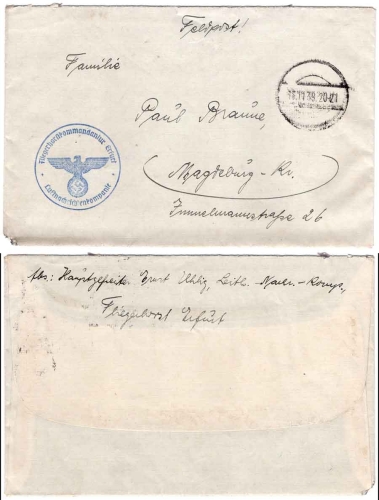 Feldpost!
Familie
Paul Braune,
Magdeburg-Kr.
Immelmannstraße 26
Fliegerhorstkommandantur Erfurt
Luftnachrichtenkompanie
11.39 20-21
Abs: Ernst Uhlig, Luftn.
Fliegerhorst Erfurt